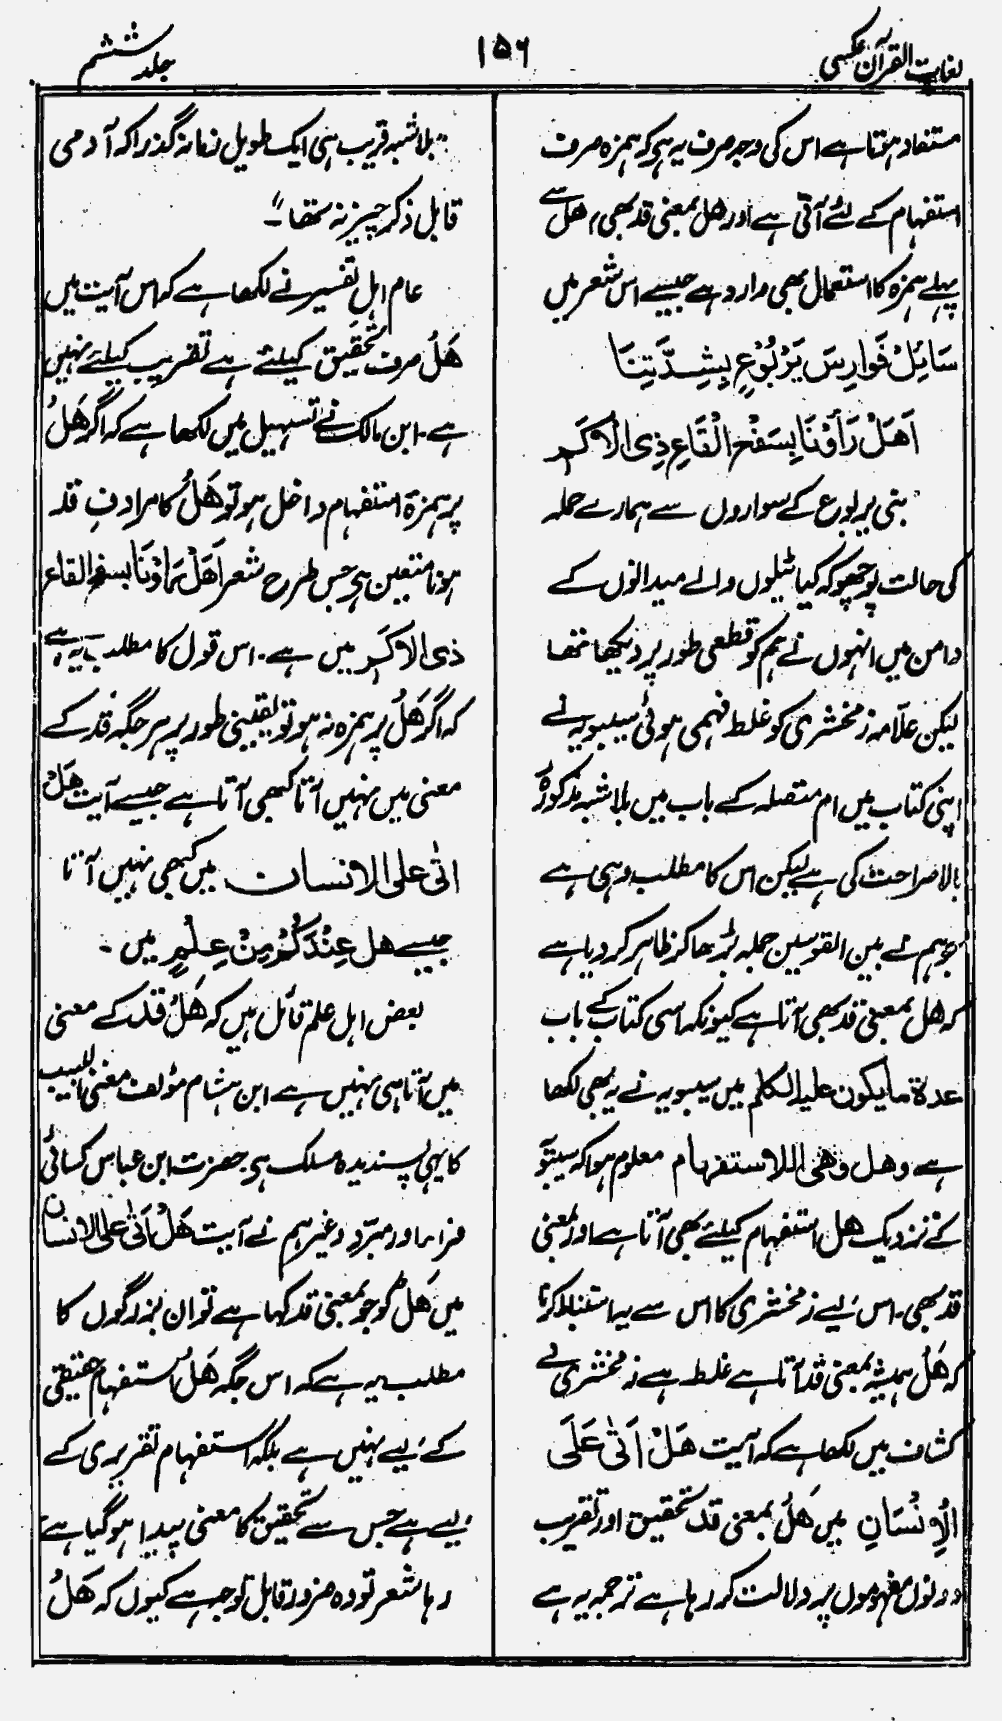 لغات القرآن عکسی
۱۵۶
جلد ششم
مستفاد ہوتا ہے اس کی وجہ صرف یہ ہی کہ ہمزہ صرف
استفہام کے لئے آتی ہے اور ھل بمعنی قد بھی، ھل سے
پہلے ہمزہ کا استعمال بھی وارد ہے جیسے اس شعر میں
سَائِلْ فَوَارِسَ یَرْبُوْعٍ بِشِدَّتِنَا
اَھَلْ رَأَوْنَا بِسَفْحِ الْقَاعِ ذِی الْاَکَمِ
بنی یربوع کے سواروں سے ہمارے حملہ
کی حالت پوچھو کہ کیا ٹیلوں والے میدانوں کے
دامن میں انہوں نے ہم کو قطعی طور پر دیکھا تھا
لیکن علّامہ زمخشری کو غلط فہمی ہوئی سیبویہ نے
اپنی کتاب میں ام متصلہ کے باب میں بلاشبہ مذکورہ
بالا صراحت کی ہے لیکن اس کا مطلب وہی ہے
جو ہم نے بین القوسین جملہ بڑھا کر ظاہر کر دیا ہے
کہ ھل بمعنی قد بھی آتا ہے کیونکہ اسی کتاب کے باب
عدۃ ما یکون علیہ الکلم میں سیبویہ نے یہ بھی لکھا
ہے وھل وھی للاستفہام معلوم ہوا کہ سیبویہ
کے نزدیک ھل استفہام کیلئے بھی آتا ہے اور بمعنی
قد بھی۔ اس لیے زمخشری کا اس سے یہ استنباط کرنا
کہ ھَلْ ہمیشہ بمعنی قد آتا ہے غلط ہے زمخشری نے
کشاف میں لکھا ہے کہ آیت ھَلْ اَتٰی عَلَی
الْاِنْسَانِ میں ھَلْ بمعنی قد تحقیق اور تقریب
دونوں مفہوموں پر دلالت کر رہا ہے ترجمہ یہ ہے
"بلاشبہ قریب ہی ایک طویل زمانہ گذرا کہ آدمی
قابل ذکر چیز نہ تھا"۔
عام اہلِ تفسیر نے لکھا ہے کہ اس آیت میں
ھَلْ صرف تحقیق کیلئے ہے تقریب کیلئے نہیں
ہے۔ ابن مالک نے تسہیل میں لکھا ہے کہ اگر ھَلْ
پر ہمزۂ استفہام داخل ہو تو ھَلْ کا مرادفِ قد
ہونا متعین ہی جس طرح شعر اَھَلْ رَاَوْنَا بسفح القاع
ذی الاکم میں ہے۔ اس قول کا مطلب یہ ہے
کہ اگر ھَلْ پر ہمزہ نہ ہو تو یقینی طور پر ہر جگہ قد کے
معنی میں نہیں آتا کبھی آتا ہے جیسے آیت ھَلْ
اتٰی علی الانسان میں کبھی نہیں آتا
جیسے ھل عِنْدَکُمْ مِنْ عِلْمٍ میں۔
بعض اہل علم قائل ہیں کہ ھَلْ قد کے معنی
میں آتا ہی نہیں ہے ابن ہشام مؤلف مغنی اللبیب
کا یہی پسندیدہ مسلک ہی حضرت ابن عباس کسائی
فراء اور مبرّد وغیرہم نے آیت ھَلْ اَتٰی علی الانسان
میں ھَلْ کو جو بمعنی قد کہا ہے تو ان بزرگوں کا
مطلب یہ ہے کہ اس جگہ ھَلْ استفہام حقیقی
کے لیے نہیں ہے بلکہ استفہام تقریری کے
لیے ہے جس سے تحقیق کا معنی پیدا ہو گیا ہے
رہا شعر تو وہ ضرور قابل توجہ ہے کیوں کہ ھَلْ